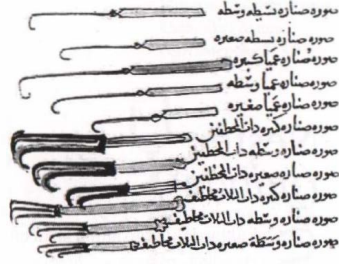 صورة صنارة بسيطة وسطة
صورة صنارة بسيطة صغيرة
صورة صنارة عميا كبيرة
صورة صنارة عميا وسطة
صورة صنارة عميا صغيرة
صورة صنارة كبيرة ذات الخطافين
صورة صنارة وسطة ذات الخطافين
صورة صنارة صغيرة ذات الخطافين
صورة صنارة كبيرة ذات الثلاث مخاطيف
صورة صنارة وسطة ذات الثلاث مخاطيف
صورة صنارة صغيرة ذات الثلاث مخاطيف